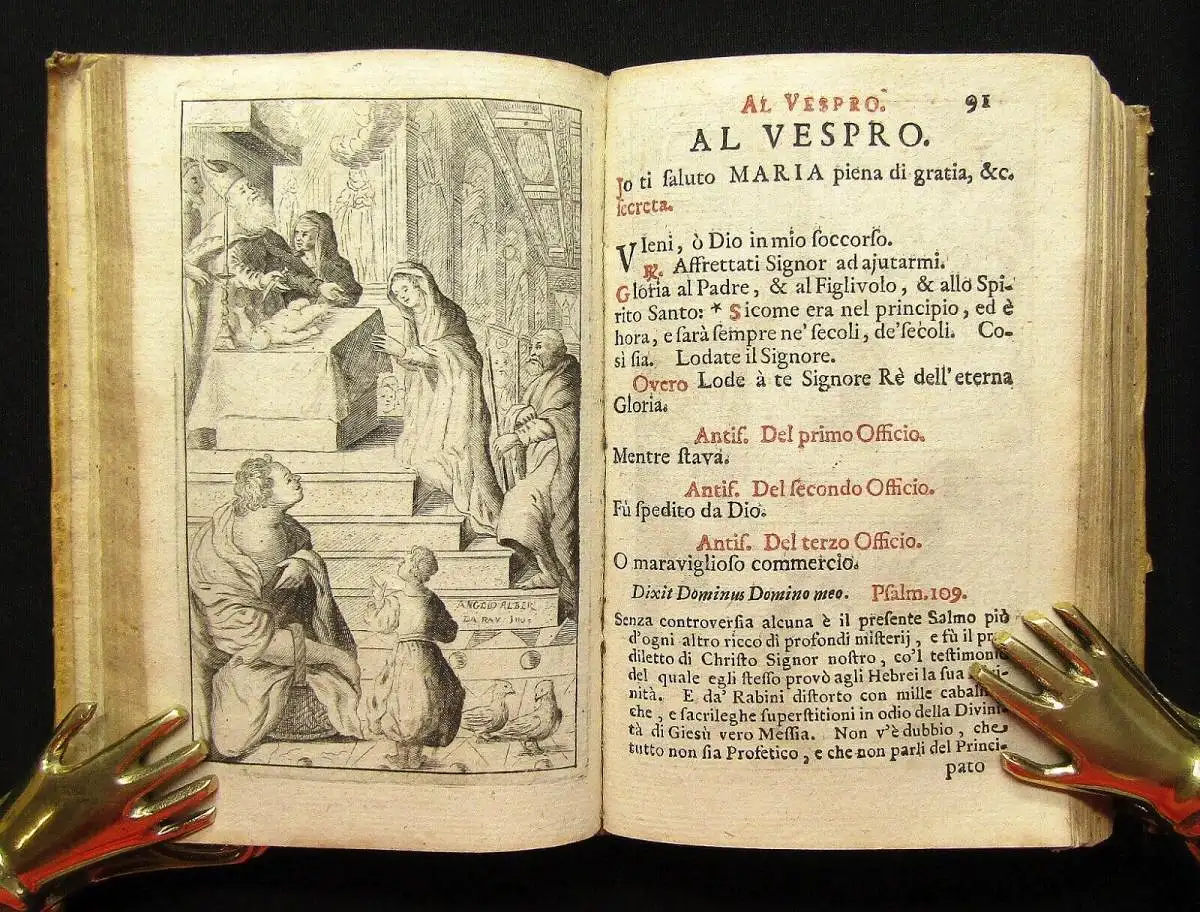 ANGELO ALBER
DA RAV
AL VESPRO. 91
AL VESPRO.
Jo ti ſaluto MARIA piena di gratia, &c.
ſecreta.
VIeni, ò Dio in mio ſoccorſo.
℟. Affrettati Signor ad ajutarmi.
Gloria al Padre, & al Figlivolo, & allo Spi-
rito Santo: * Sicome era nel principio, ed è
hora, e ſarà ſempre ne' ſecoli, de' ſecoli. Co-
sì ſia. Lodate il Signore.
Overo Lode à te Signore Rè dell' eterna
Gloria.
Antiſ. Del primo Officio.
Mentre ſtava.
Antiſ. Del ſecondo Officio.
Fù ſpedito da Dio.
Antiſ. Del terzo Officio.
O maraviglioſo commercio.
Dixit Dominus Domino meo. Pſalm. 109.
Senza controverſia alcuna è il preſente Salmo più
d'ogni altro ricco di profondi miſterij, e fù il
diletto di Chriſto Signor noſtro, co'l teſtimonio
del quale egli ſteſſo provò agli Hebrei la ſua
nità. E da' Rabini diſtorto con mille
che, e ſacrileghe ſuperſtitioni in odio della Divini-
tà di Gieſù vero Meſſia. Non v'è dubbio, che
tutto non ſia Profetico, e che non parli del Princi-
pato